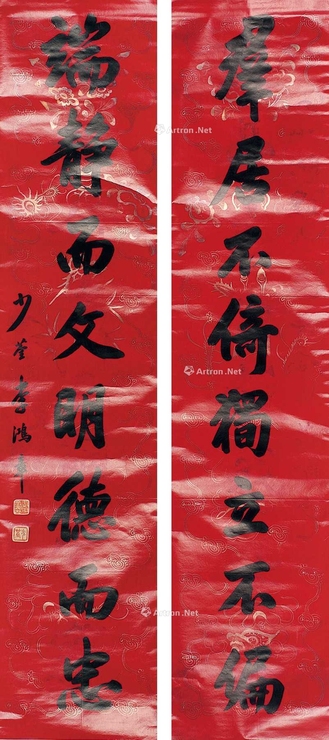 羣居不倚獨立不偏
端静而文明德而忠
少荃李鴻章
Artron.Net
Artron.Net
Artron.Net